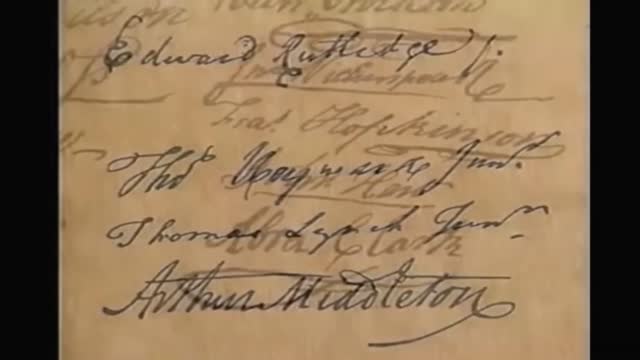 Edward Rutledge /.
Jno Witherspoon
Fras. Hopkinson
Thos Heyward Junr.
Hart
Thomas Lynch Junr.
Abra Clark
Arthur Middleton